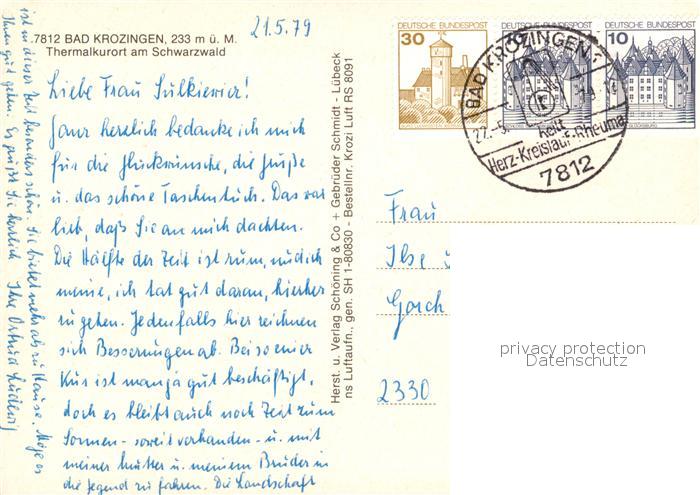 7812 BAD KROZINGEN, 233 m ü. M.
Thermalkurort am Schwarzwald
21.5.79
Liebe Frau Sulkiewicz!
Ganz herzlich bedanke ich mich
für die Glückwünsche, die Grüße
u. das schöne Taschentuch. Das war
lieb, daß Sie an mich dachten.
Die Hälfte der Zeit ist rum, und ich
meine, ich tat gut daran, hierher
zu gehen. Jedenfalls hier zeichnen
sich Besserungen ab. Bei so einer
Kur ist man ja gut beschäftigt,
doch es bleibt auch noch Zeit zum
Sonnen - soweit vorhanden - u. mit
meiner Mutter u. meinem Bruder in
die Gegend zu fahren. Die Landschaft
ist in dieser Zeit besonders schön. Sie bietet mehr als zu Hause. Möge es
Ihnen gut gehen. Es grüßt Sie herzlich Ihre Ortrud Ludewig
Herst. u. Verlag Schöning & Co + Gebrüder Schmidt · Lübeck
ns Luftaufn., gen. SH 1-80830 - Bestellnr. Krozi Luft RS 8091
DEUTSCHE BUNDESPOST
30
DEUTSCHE BUNDESPOST
DEUTSCHE BUNDESPOST
10
BURG LUDWIGSTEIN WERRATAL
GLÜCKSBURG
BAD KROZINGEN 1
22.-5.
heilt
Herz-Kreislauf-Rheuma
7812
Frau
Ilse
Gorch
2330
privacy protection
Datenschutz